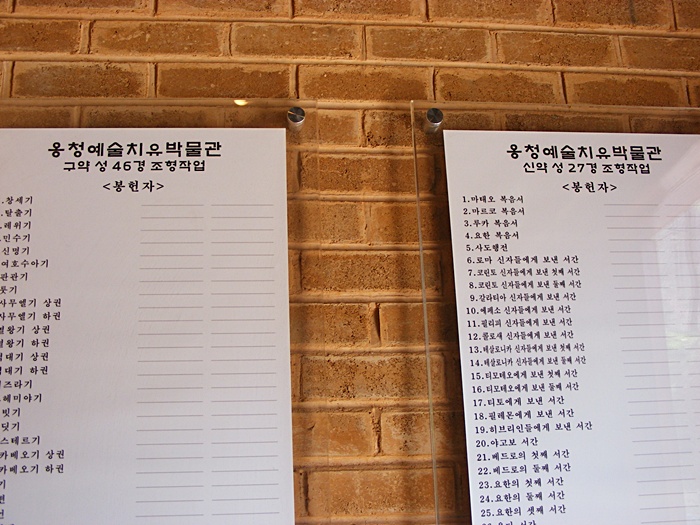 옹청예술치유박물관
구약 성 46경 조형작업
<봉헌자>
.창세기
.탈출기
.레위기
.민수기
신명기
여호수아기
판관기
룻기
사무엘기 상권
사무엘기 하권
열왕기 상권
열왕기 하권
역대기 상권
역대기 하권
에즈라기
느헤미야기
토빗기
유딧기
에스테르기
마카베오기 상권
마카베오기 하권
옹청예술치유박물관
신약 성 27경 조형작업
<봉헌자>
1.마태오 복음서
2.마르코 복음서
3.루카 복음서
4.요한 복음서
5.사도행전
6.로마 신자들에게 보낸 서간
7.코린토 신자들에게 보낸 첫째 서간
8.코린토 신자들에게 보낸 둘째 서간
9.갈라티아 신자들에게 보낸 서간
10.에페소 신자들에게 보낸 서간
11.필리피 신자들에게 보낸 서간
12.콜로새 신자들에게 보낸 서간
13.테살로니카 신자들에게 보낸 첫째 서간
14.테살로니카 신자들에게 보낸 둘째 서간
15.티모테오에게 보낸 첫째 서간
16.티모테오에게 보낸 둘째 서간
17.티토에게 보낸 서간
18.필레몬에게 보낸 서간
19.히브리인들에게 보낸 서간
20.야고보 서간
21.베드로의 첫째 서간
22.베드로의 둘째 서간
23.요한의 첫째 서간
24.요한의 둘째 서간
25.요한의 셋째 서간